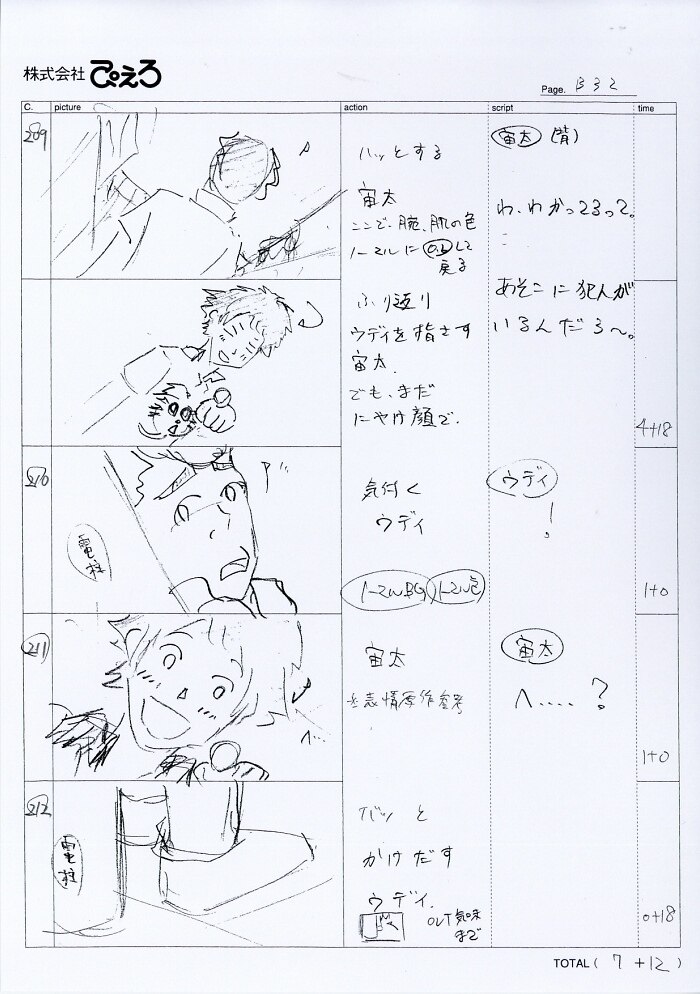 株式会社 ぴえろ
Page. B32
C. picture action script time
209
ハッとする
宙太
ここで、腕、肌の色
ノーマルに O.Lして
戻る
宙太(背)
わ、わかってるって。
ふり返り
ウディを指さす
宙太。
でも、まだ
にやけ顔で。
あそこに犯人が
いるんだろ〜。
4+18
210
電柱
気付く
ウディ
ノーマルBG ノーマル色
ウディ
!
1+0
211
ヘ…
宙太
※表情原作参考
宙太
ヘ…‥?
1+0
212
電柱
バッと
かけだす
ウディ.
OUT気味
まで
0+18
TOTAL ( 7 +12 )